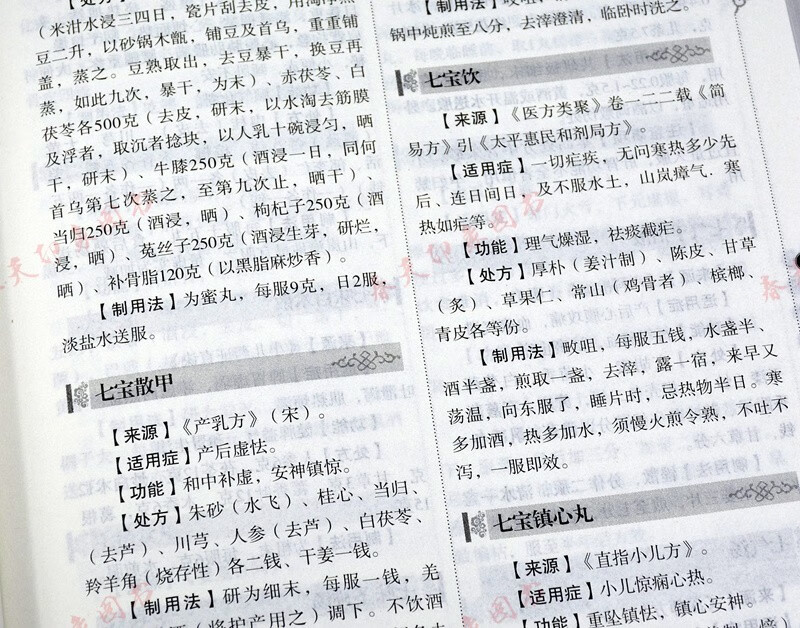 （米泔水浸三四日，瓷片刮去皮，用
豆二升，以砂锅木甑，铺豆及首乌，重重铺
盖，蒸之。豆熟取出，去豆暴干，换豆再
蒸，如此九次，暴干，为末）、赤茯苓、白
茯苓各500克（去皮，研末，以水淘去筋膜
及浮者，取沉者捻块，以人乳十碗浸匀，晒
干，研末）、牛膝250克（酒浸一日，同何
首乌第七次蒸之，至第九次止，晒干）、
当归250克（酒浸，晒）、枸杞子250克（酒
浸，晒）、菟丝子250克（酒浸生芽，研烂，
晒）、补骨脂120克（以黑脂麻炒香）。
【制用法】为蜜丸，每服9克，日2服，
淡盐水送服。
七宝散甲
【来源】《产乳方》（宋）。
【适用症】产后虚怯。
【功能】和中补虚，安神镇惊。
【处方】朱砂（水飞）、桂心、当归、
（去芦）、川芎、人参（去芦）、白茯苓、
羚羊角（烧存性）各二钱、干姜一钱。
【制用法】研为细末，每服一钱，羌
（将护产用之）调下。不饮酒
【制用法】㕮咀，
锅中炖煎至八分，去滓澄清，临卧时洗之。
七宝饮
【来源】《医方类聚》卷一二二载《简
易方》引《太平惠民和剂局方》。
【适用症】一切疟疾，无问寒热多少先
后、连日间日，及不服水土，山岚瘴气，寒
热如疟等。
【功能】理气燥湿，祛痰截疟。
【处方】厚朴（姜汁制）、陈皮、甘草
（炙）、草果仁、常山（鸡骨者）、槟榔、
青皮各等份。
【制用法】㕮咀，每服五钱，水盏半、
酒半盏，煎取一盏，去滓，露一宿，来早又
荡温，向东服了，睡片时，忌热物半日。寒
多加酒，热多加水，须慢火煎令熟，不吐不
泻，一服即效。
七宝镇心丸
【来源】《直指小儿方》。
【适用症】小儿惊痫心热。
【功能】重坠镇怯，镇心安神。